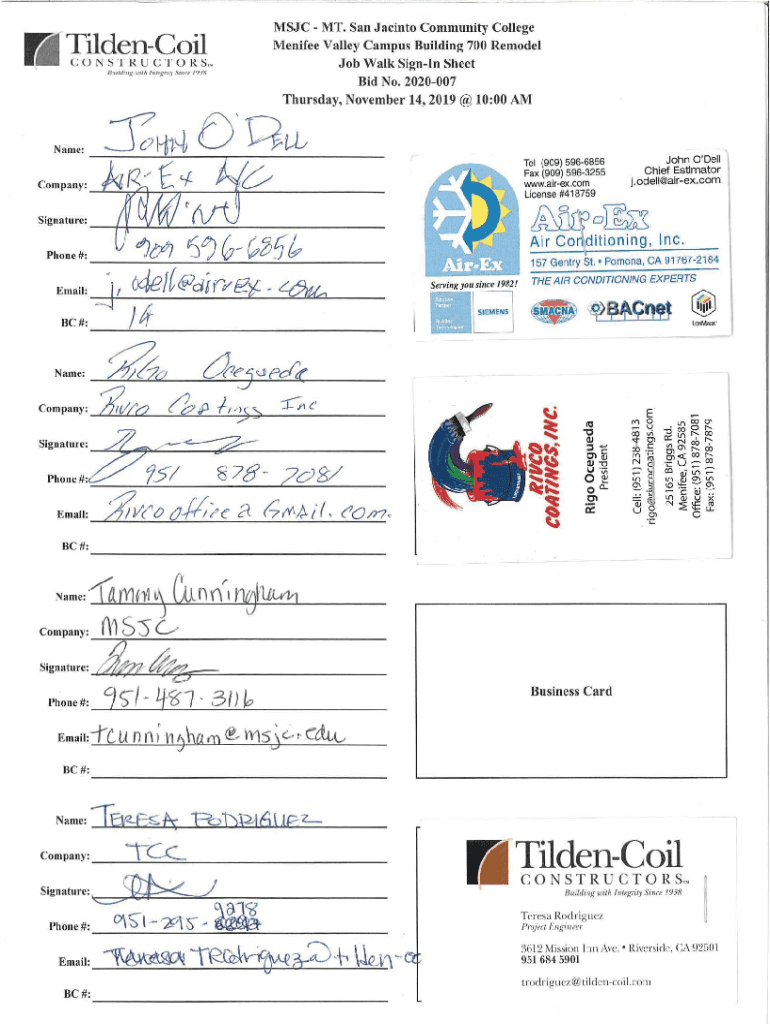 Tilden-Coil
CONSTRUCTORS
Building with Integrity Since 1938
MSJC - MT. San Jacinto Community College
Menifee Valley Campus Building 700 Remodel
Job Walk Sign-In Sheet
Bid No. 2020-007
Thursday, November 14, 2019 @ 10:00 AM
Name: JOHN O'DELL
Company: AIR-Ex A/C
Signature:
Phone #: 909 596-6856
Email: j.odell@air-ex.com
BC #: 14
Tel (909) 596-6856
Fax (909) 596-3255
www.air-ex.com
License #418759
John O'Dell
Chief Estimator
j.odell@air-ex.com
Air-Ex
Air Conditioning, Inc.
157 Gentry St. • Pomona, CA 91767-2184
THE AIR CONDITIONING EXPERTS
Air-Ex
Serving you since 1982!
SIEMENS
SMACNA
BACnet
LONMARK
Name: Rigo Ocegueda
Company: Rivco Coatings Inc
Signature:
Phone #: 951 878-7081
Email: Rivcooffice@GMAil.com.
BC #:
RIVCO
COATINGS, INC.
Rigo Ocegueda
President
Cell: (951) 238-4813
rigo@rivcocoatings.com
25165 Briggs Rd.
Menifee, CA 92585
Office: (951) 878-7081
Fax: (951) 878-7879
Name: Tammy Cunningham
Company: MSJC
Signature:
Phone #: 951-487-3116
Email: tcunningham@msjc.edu
BC #:
Business Card
Name: TERESA RODRIGUEZ
Company: TCC
Signature:
Phone #: 951-295-9278
Email: TRodriguez@tilden-co
BC #:
Tilden-Coil
CONSTRUCTORS
Building with Integrity Since 1938
Teresa Rodriguez
Project Engineer
3612 Mission Inn Ave. • Riverside, CA 92501
951 684 5901
trodriguez@tilden-coil.com